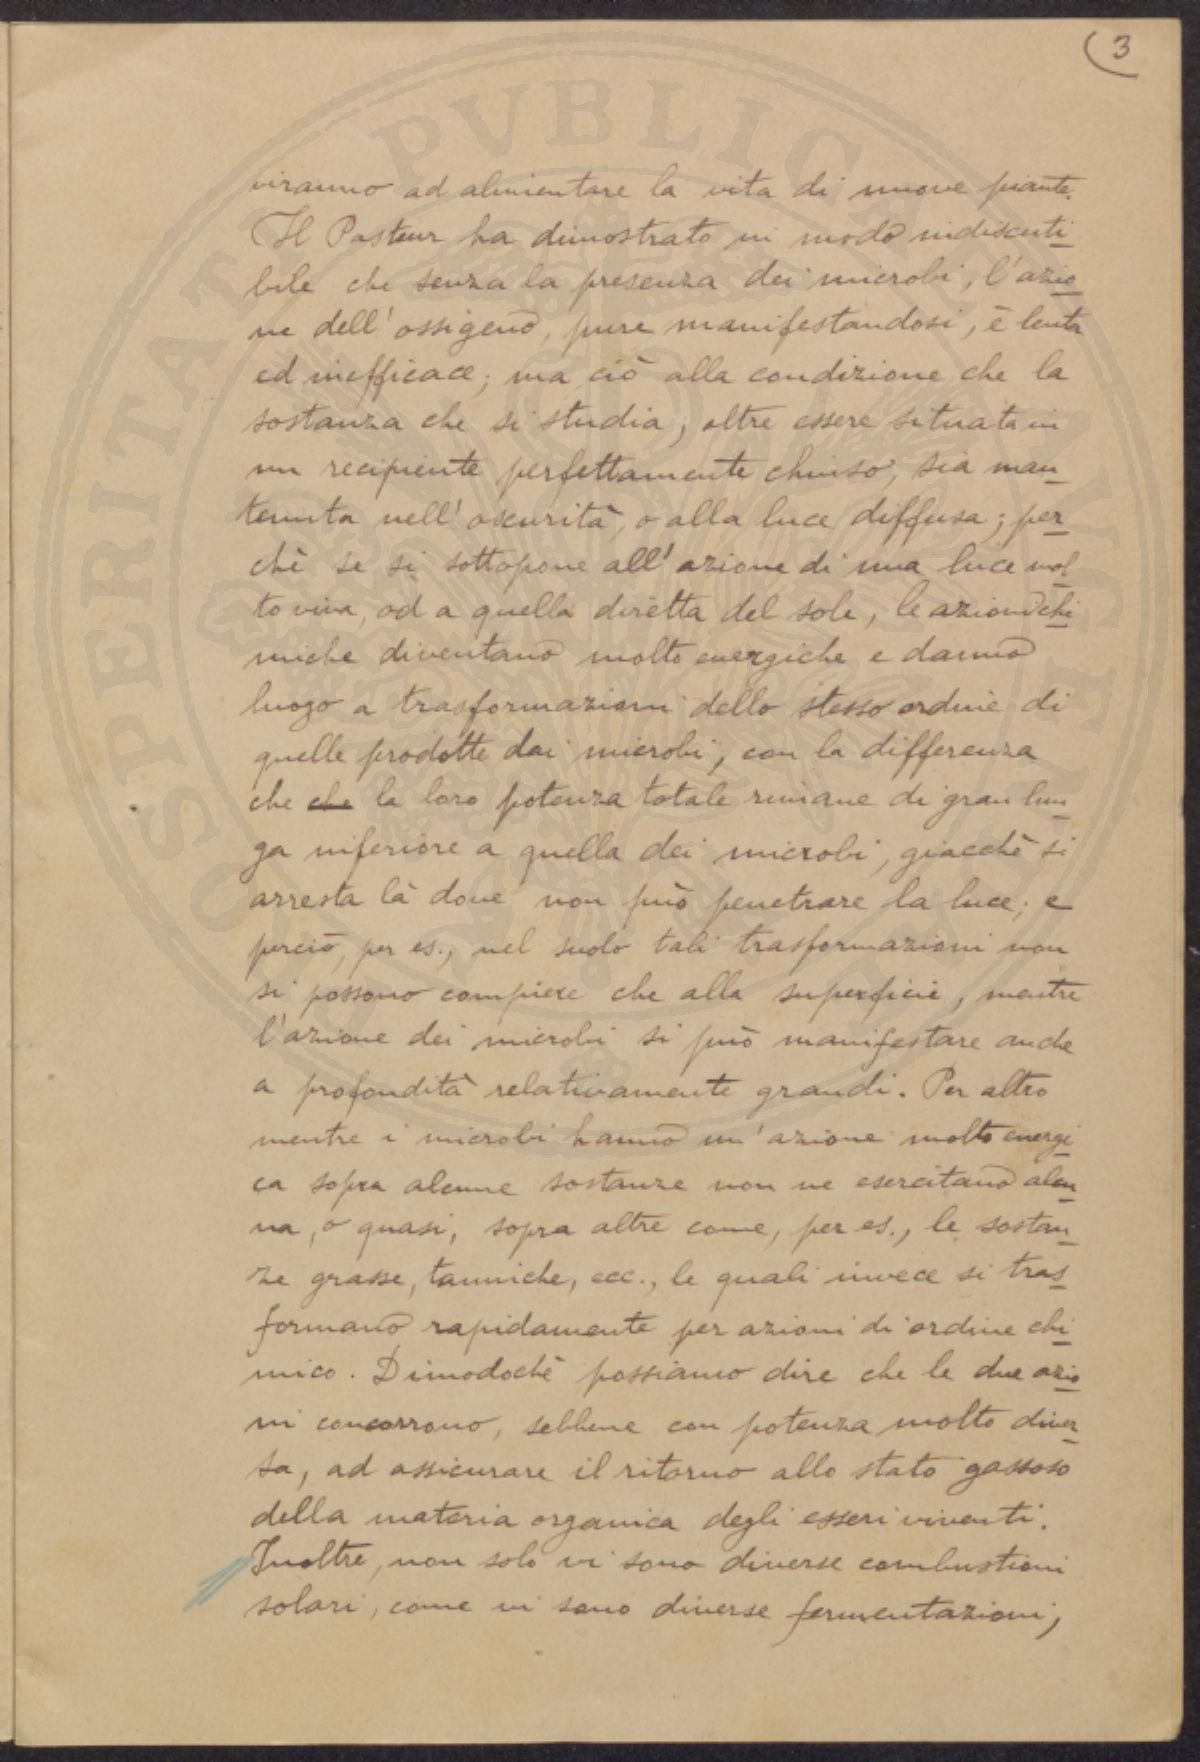 3
viranno ad alimentare la vita di nuove piante.
Il Pasteur ha dimostrato in modo indiscuti-
bile che senza la presenza dei microbi, l'azio-
ne dell'ossigeno, pure manifestandosi, è lenta
ed inefficace; ma ciò alla condizione che la
sostanza che si studia, oltre essere situata in
un recipiente perfettamente chiuso, sia man-
tenuta nell'oscurità, o alla luce diffusa; per-
chè se si sottopone all'azione di una luce mol-
to viva, od a quella diretta del sole, le azioni chi-
miche diventano molto energiche e danno
luogo a trasformazioni dello stesso ordine di
quelle prodotte dai microbi, con la differenza
che che la loro potenza totale rimane di gran lun-
ga inferiore a quella dei microbi, giacchè si
arresta là dove non può penetrare la luce; e
perciò, per es., nel suolo tali trasformazioni non
si possono compiere che alla superficie, mentre
l'azione dei microbi si può manifestare anche
a profondità relativamente grandi. Per altro
mentre i microbi hanno un'azione molto energi-
ca sopra alcune sostanze non ne esercitano alcu-
na, o quasi, sopra altre come, per es., le sostan-
ze grasse, tanniche, ecc., le quali invece si tras-
formano rapidamente per azioni di ordine chi-
mico. Dimodochè possiamo dire che le due azio-
ni concorrono, sebbene con potenza molto diver-
sa, ad assicurare il ritorno allo stato gassoso
della materia organica degli esseri viventi.
Inoltre, non solo vi sono diverse combustioni
solari, come vi sono diverse fermentazioni,
PROSPERITATI PVBLICAE